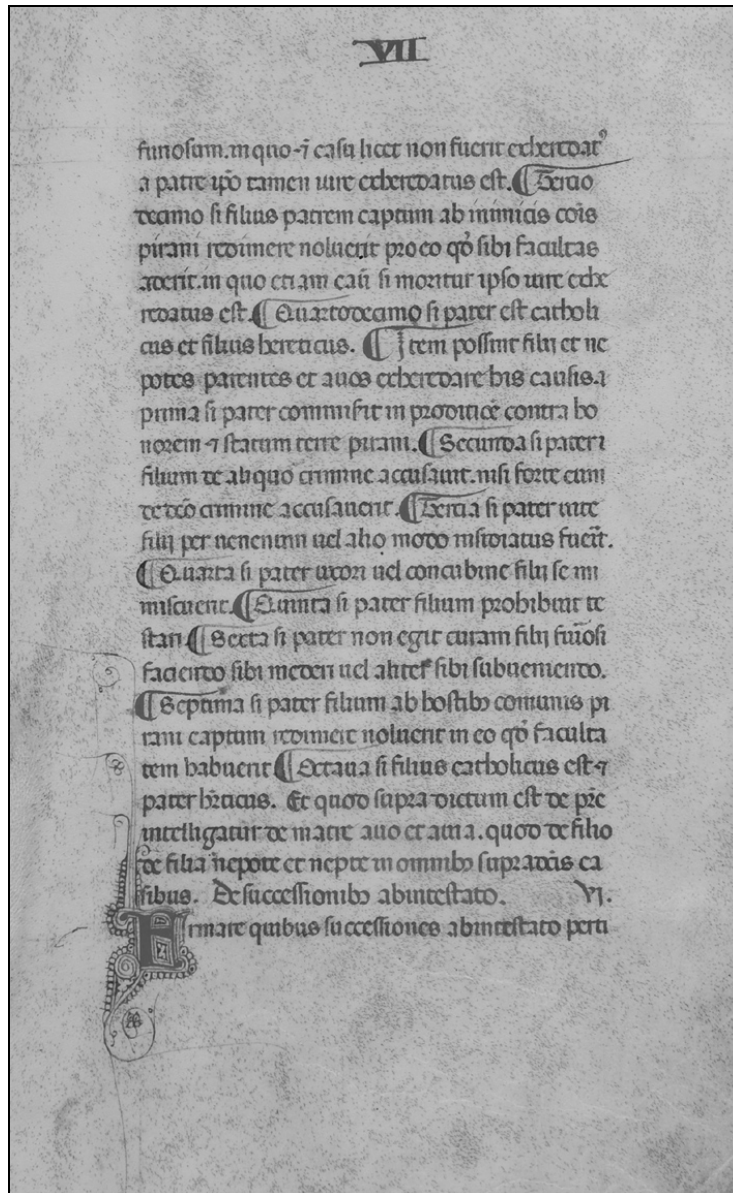 VII
furiosum. in quo ⁊ī casu licet non fuerit exheredatꝰ
a patre ip̄o tamen iure exheredatus est. ¶ Tercio
decimo si filius patrem captum ab inimicis cōis
pirani redimere noluerit pro eo qđ sibi facultas
aderit. in quo etiam casu si moritur ipso iure exhe
redatus est. ¶ Quartodecimo si pater est catholi
cus et filius hereticus. ¶ Item possint filij et ne
potes parentes et auos exheredare his causis. ⁊
prima si pater commisit in proditiōē contra ho
norem ⁊ statum terre pirani. ¶ Secunda si pater
filium de aliquo crimine accusauit. nisi forte eum
de dc̄o crimine accusauerit. ¶ Tercia si pater uite
filij per uenenum uel alio modo insidiatus fuerit.
¶ Quarta si pater uxori uel concubine filij se im
miscuerit. ¶ Quinta si pater filium prohibuit te
stari ¶ Sexta si pater non egit curam filij furiosi
faciendo sibi mederi uel aliter sibi subueniendo.
¶ Septima si pater filium ab hostibꝫ comunis pi
rani captum redimere noluerit in eo qđ faculta
tem habuerit ¶ Octaua si filius catholicus est ⁊
pater hr̄ticus. Et quod supra dictum est de pr̄e
intelligatur de matre auo et auia. quod de filio
de filia nepote et nepte in omnibꝫ supradc̄is ca
sibus. De successionibꝫ abintestato. VI.
Firmare quibus successiones abintestato perti